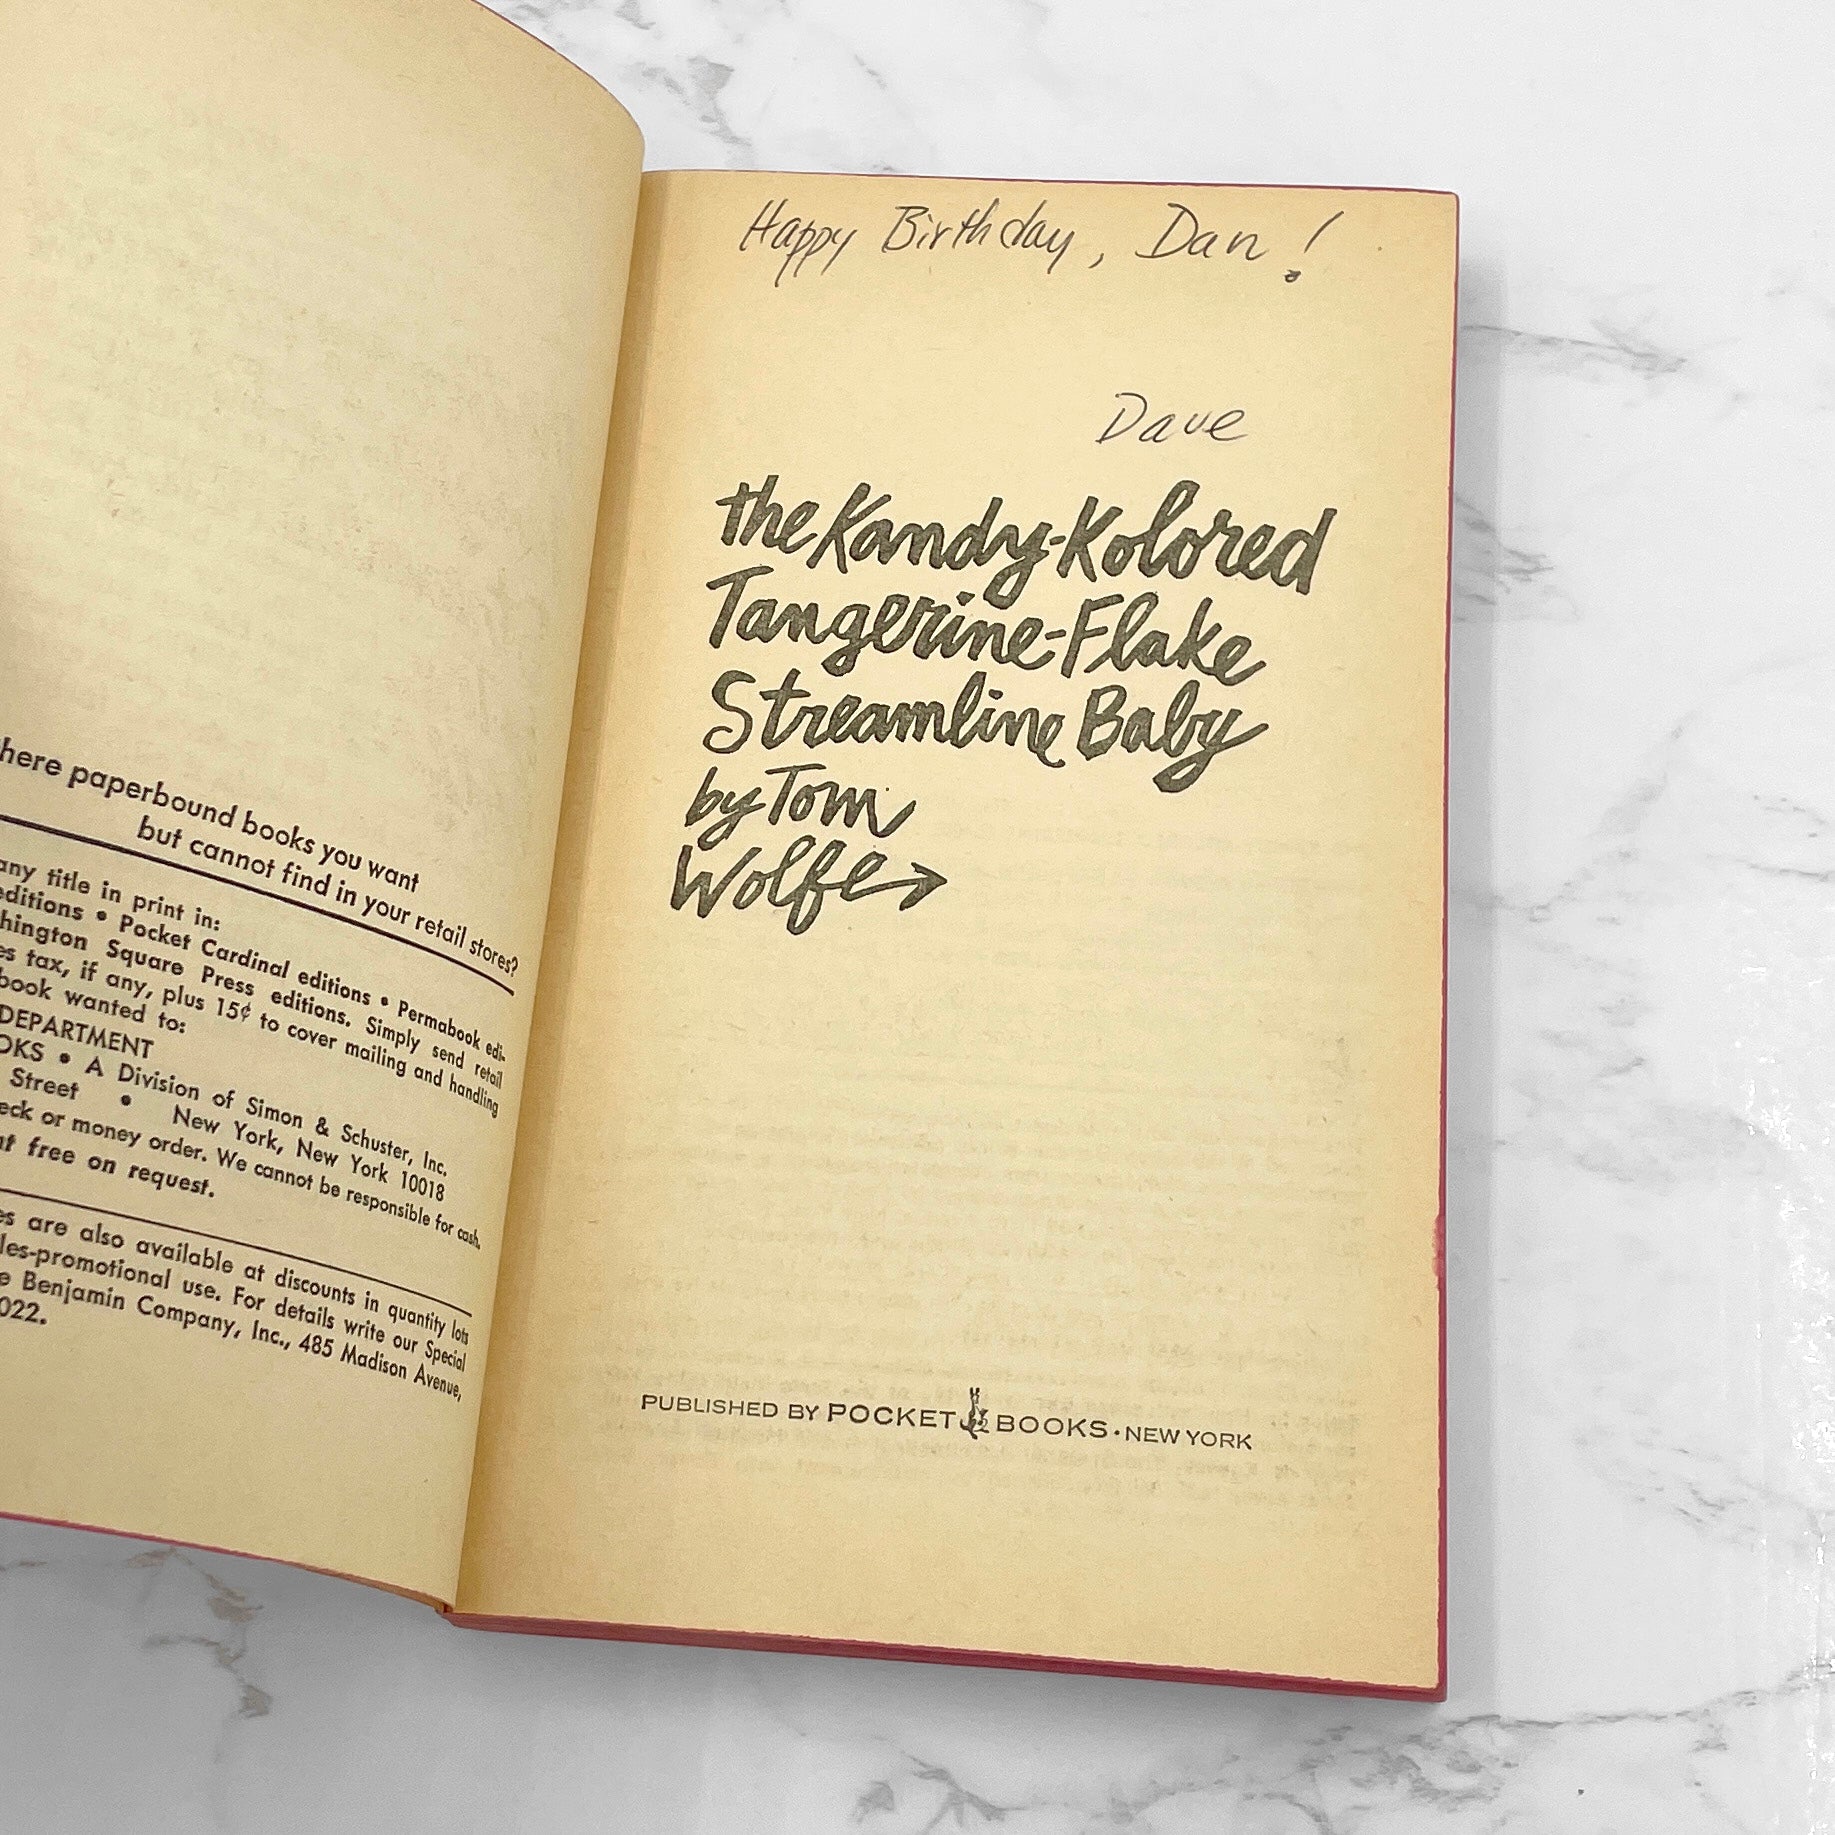 here paperbound books you want
but cannot find in your retail stores?
any title in print in:
editions • Pocket Cardinal editions • Permabook edi-
hington Square Press editions. Simply send retail
es tax, if any, plus 15¢ to cover mailing and handling
book wanted to:
DEPARTMENT
OKS • A Division of Simon & Schuster, Inc.
Street • New York, New York 10018
eck or money order. We cannot be responsible for cash.
free on request.
es are also available at discounts in quantity lots
les-promotional use. For details write our Special
e Benjamin Company, Inc., 485 Madison Avenue,
022.
Happy Birthday, Dan!
Dave
the Kandy-Kolored
Tangerine-Flake
Streamline Baby
by Tom
Wolfe
PUBLISHED BY POCKET BOOKS • NEW YORK